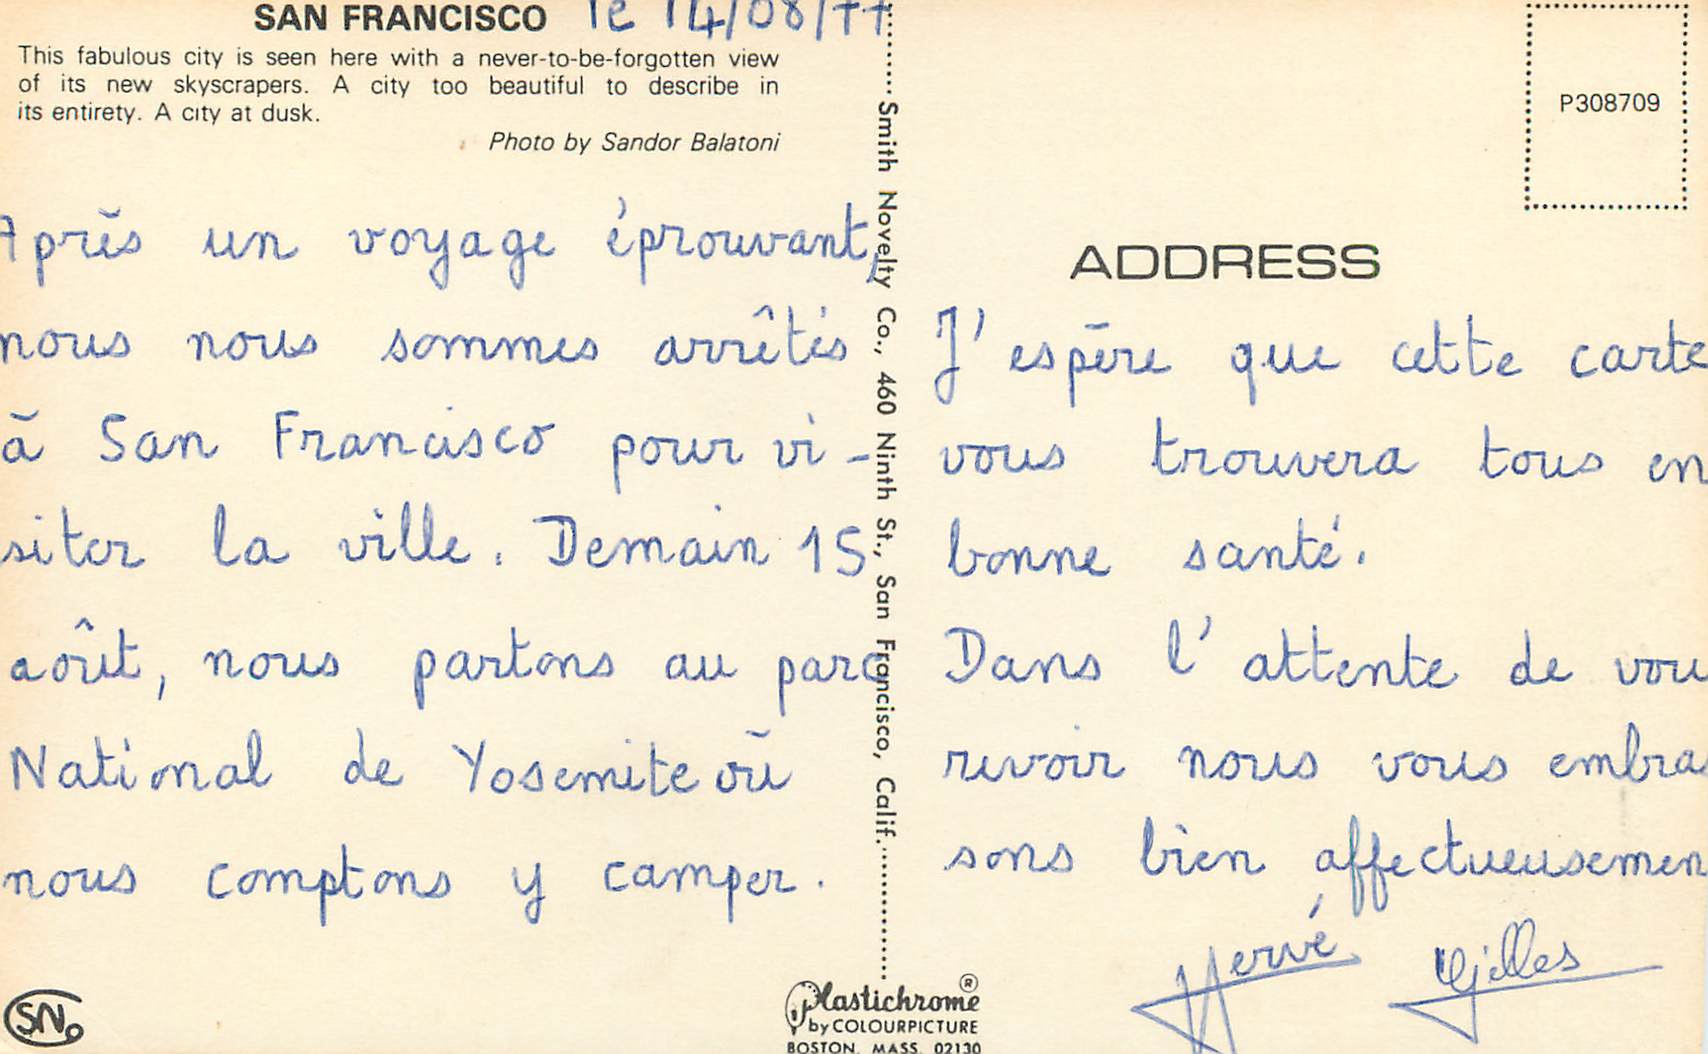 SAN FRANCISCO le 14/08/77
This fabulous city is seen here with a never-to-be-forgotten view
of its new skyscrapers. A city too beautiful to describe in
its entirety. A city at dusk.
Photo by Sandor Balatoni
Après un voyage éprouvant,
nous nous sommes arrêtés
à San Francisco pour vi-
siter la ville. Demain 15
août, nous partons au parc
National de Yosemite où
nous comptons y camper.
SN
Smith Novelty Co., 460 Ninth St., San Francisco, Calif.
Plastichrome ®
by COLOURPICTURE
BOSTON, MASS. 02130
P308709
ADDRESS
J'espère que cette carte
vous trouvera tous en
bonne santé.
Dans l'attente de vou
revoir nous vous embra
sons bien affectueusemen
Hervé Gilles